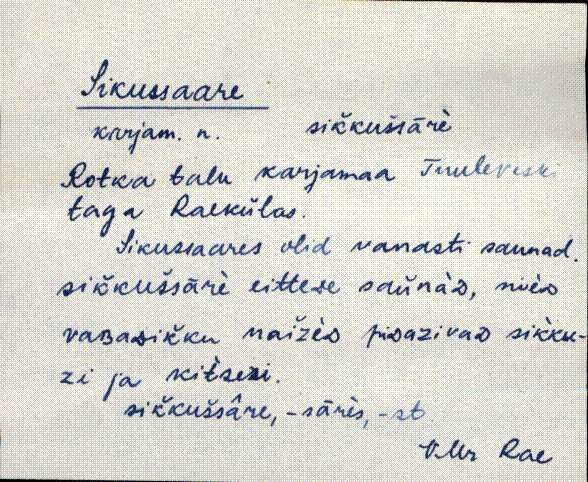 Sikussaare
karjam. n. sik̆kuššārè
Rotka talu karjamaa Tuuleveski
taga Raekülas.
Sikussaares olid vanasti saunad.
sik̆kuššārè eittese saŭnàᴅ,
vaʙaᴅik̆ku naĭzèᴅ piᴅazivaᴅ sik̀ku-
zi ja kit̀sezi.
sik̆kuššâre, -sārès, -st
VMr Rae